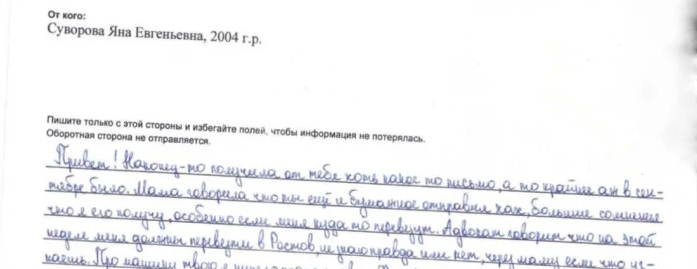 От кого:
Суворова Яна Евгеньевна, 2004 г.р.
Пишите только с этой стороны и избегайте полей, чтобы информация не потерялась.
Оборотная сторона не отправляется.
Привет! Наконец-то получила от тебя хоть какое то письмо, а то крайнее аж в сен-
тябре было. Мама говорила что ты ещё и бумажное отправил как, больше
что я его получу, особенно если меня куда то перевезут. Адвокат говорит что на этой
неделе меня должны перевезти в Ростов, не знаю правда или нет, через маму если что уз-
наешь. Про нашивки твою я